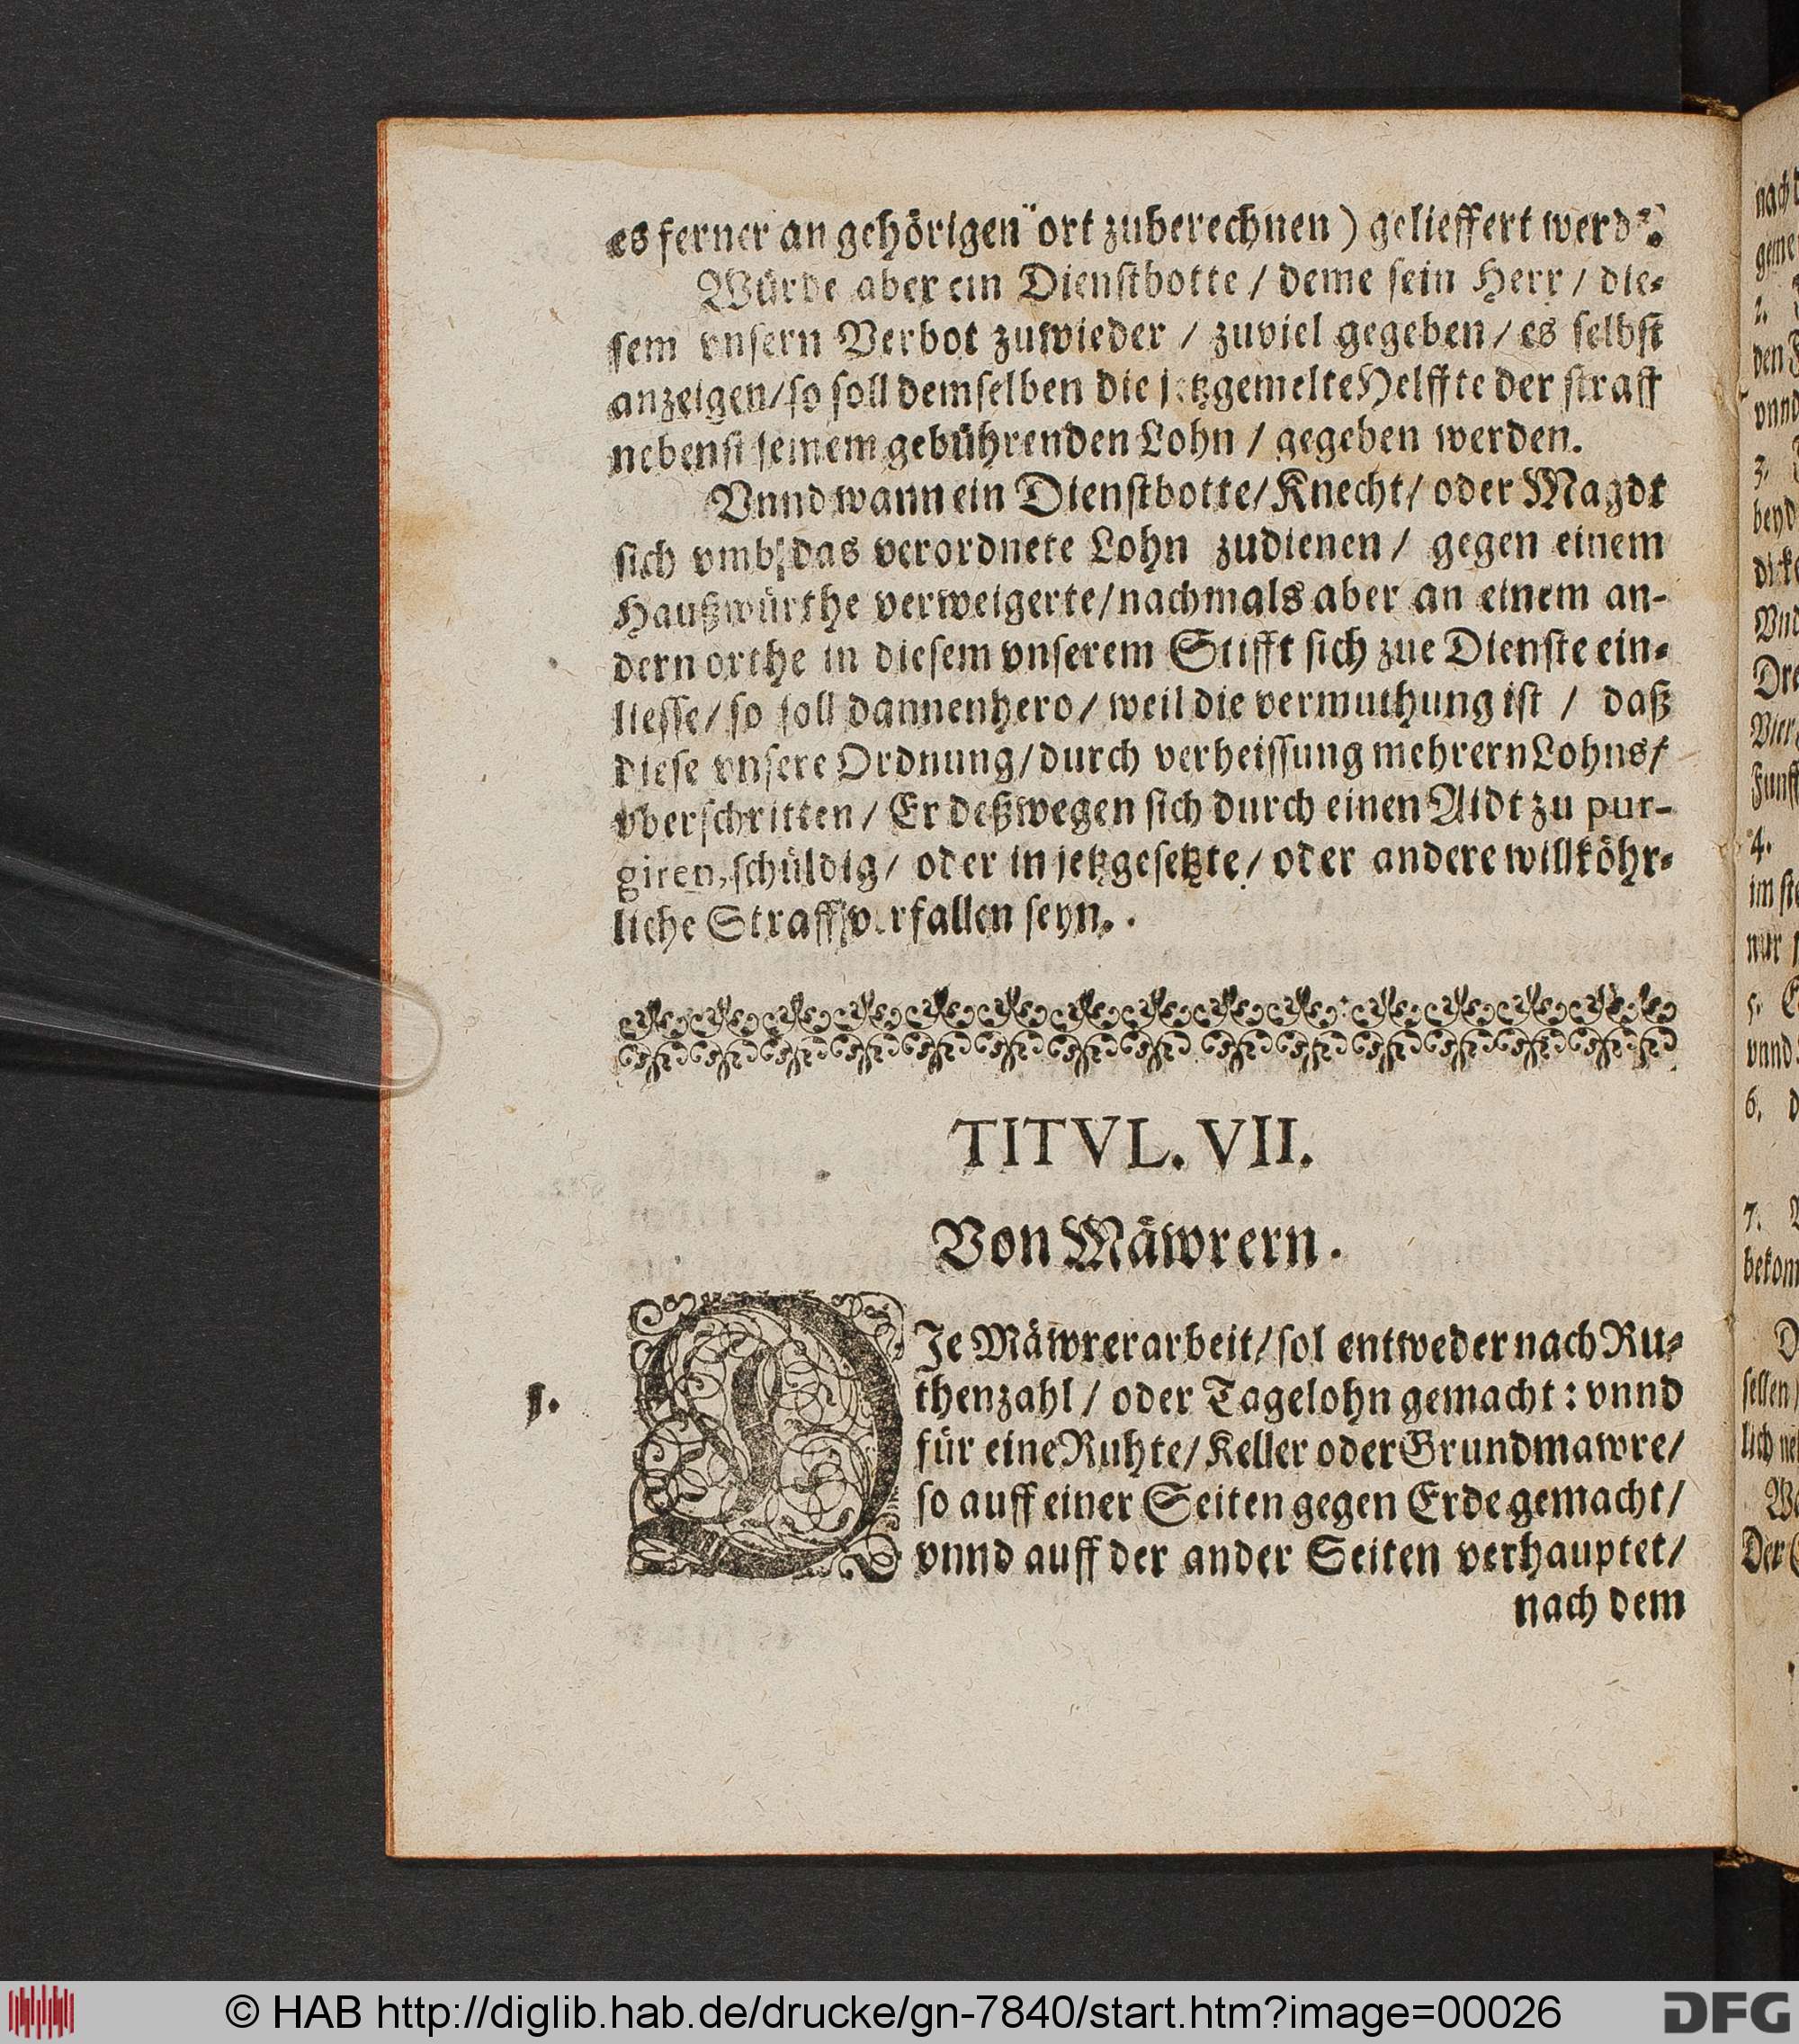 es ferner an gehörigen ort zuberechnen) gelieffert
Würde aber ein Dienstbotte / deme sein Herr / die-
sem vnsern Verbot zuwieder / zuviel gegeben / es selbst
anzeigen / so soll demselben die jetzgemelte Helffte der straff
nebenst seinem gebührenden Lohn / gegeben werden.
Vnnd wann ein Dienstbotte / Knecht / oder Magdt
sich vmb das verordnete Lohn zudienen / gegen einem
Haußwürthe verweigerte / nachmals aber an einem an-
dern orthe in diesem vnserem Stifft sich zue Dienste ein-
liesse / so soll dannenhero / weil die vermuthung ist / daß
diese vnsere Ordnung / durch verheissung mehrern Lohns /
vberschritten / Er deßwegen sich durch einen Aidt zu pur-
giren, schüldig / oder in jetzgesetzte / oder andere willköhr-
liche Straff verfallen seyn.
TITVL. VII.
Von Mäwrern.
1.
DIe Mäwrerarbeit / sol entweder nach Ru-
thenzahl / oder Tagelohn gemacht: vnnd
für eine Ruhte / Keller oder Grundmawre /
so auff einer Seiten gegen Erde gemacht /
vnnd auff der ander Seiten verhauptet /
nach dem
nach
2.
vnnd
3.
4.
nur
5.
vnnd
6.
7.
© HAB http://diglib.hab.de/drucke/gn-7840/start.htm?image=00026
DFG